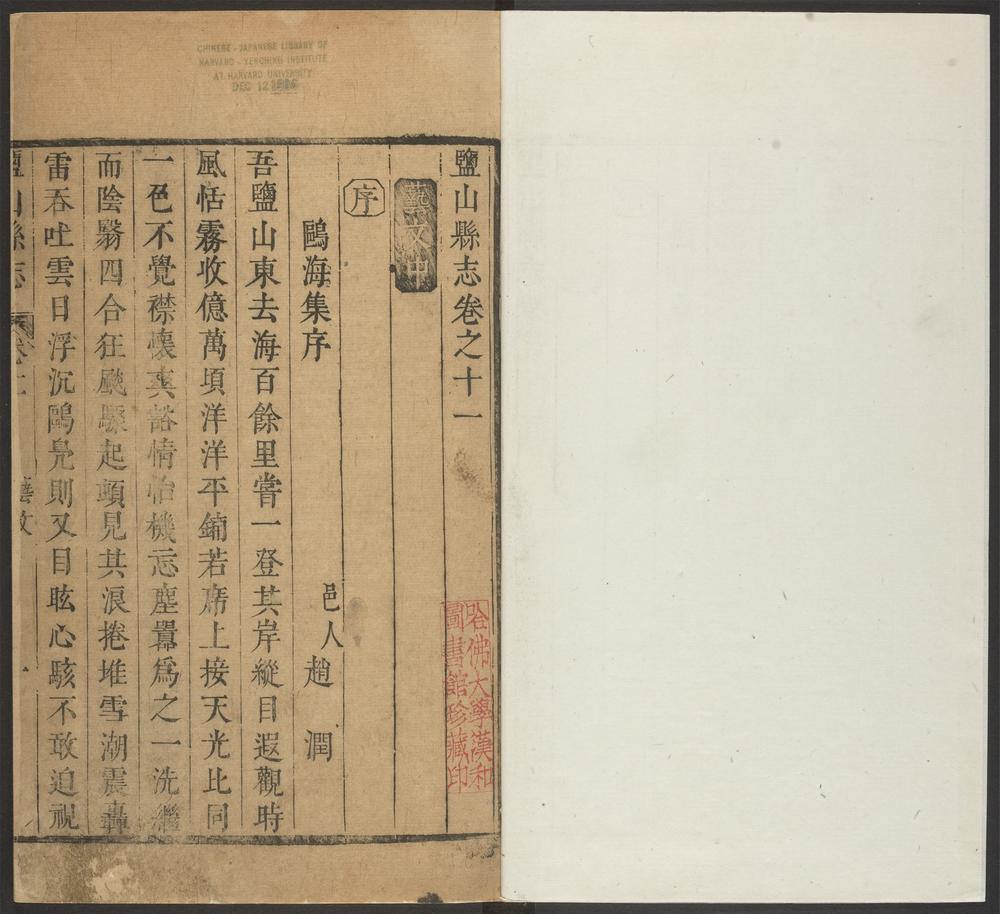 CHINESE - JAPANESE LIBRARY OF
HARVARD - YENCHING INSTITUTE
AT HARVARD UNIVERSITY
DEC 12
鹽山縣志卷之十一
藝文中
序
鷗海集序
邑人趙潤
吾鹽山東去海百餘里嘗一登其岸縱目遐觀時
風恬霧收億萬頃洋洋平鋪若席上接天光比同
一色不覺襟懷爽豁情怡機忘塵囂爲之一洗繼
而陰翳四合狂颷驟起頓見其浪捲堆雪潮震轟
雷吞吐雲日浮沉鷗鳧則又目眩心駭不敢迫視
鹽山縣志
藝文
一
哈佛大學漢和
圖書館珍藏印